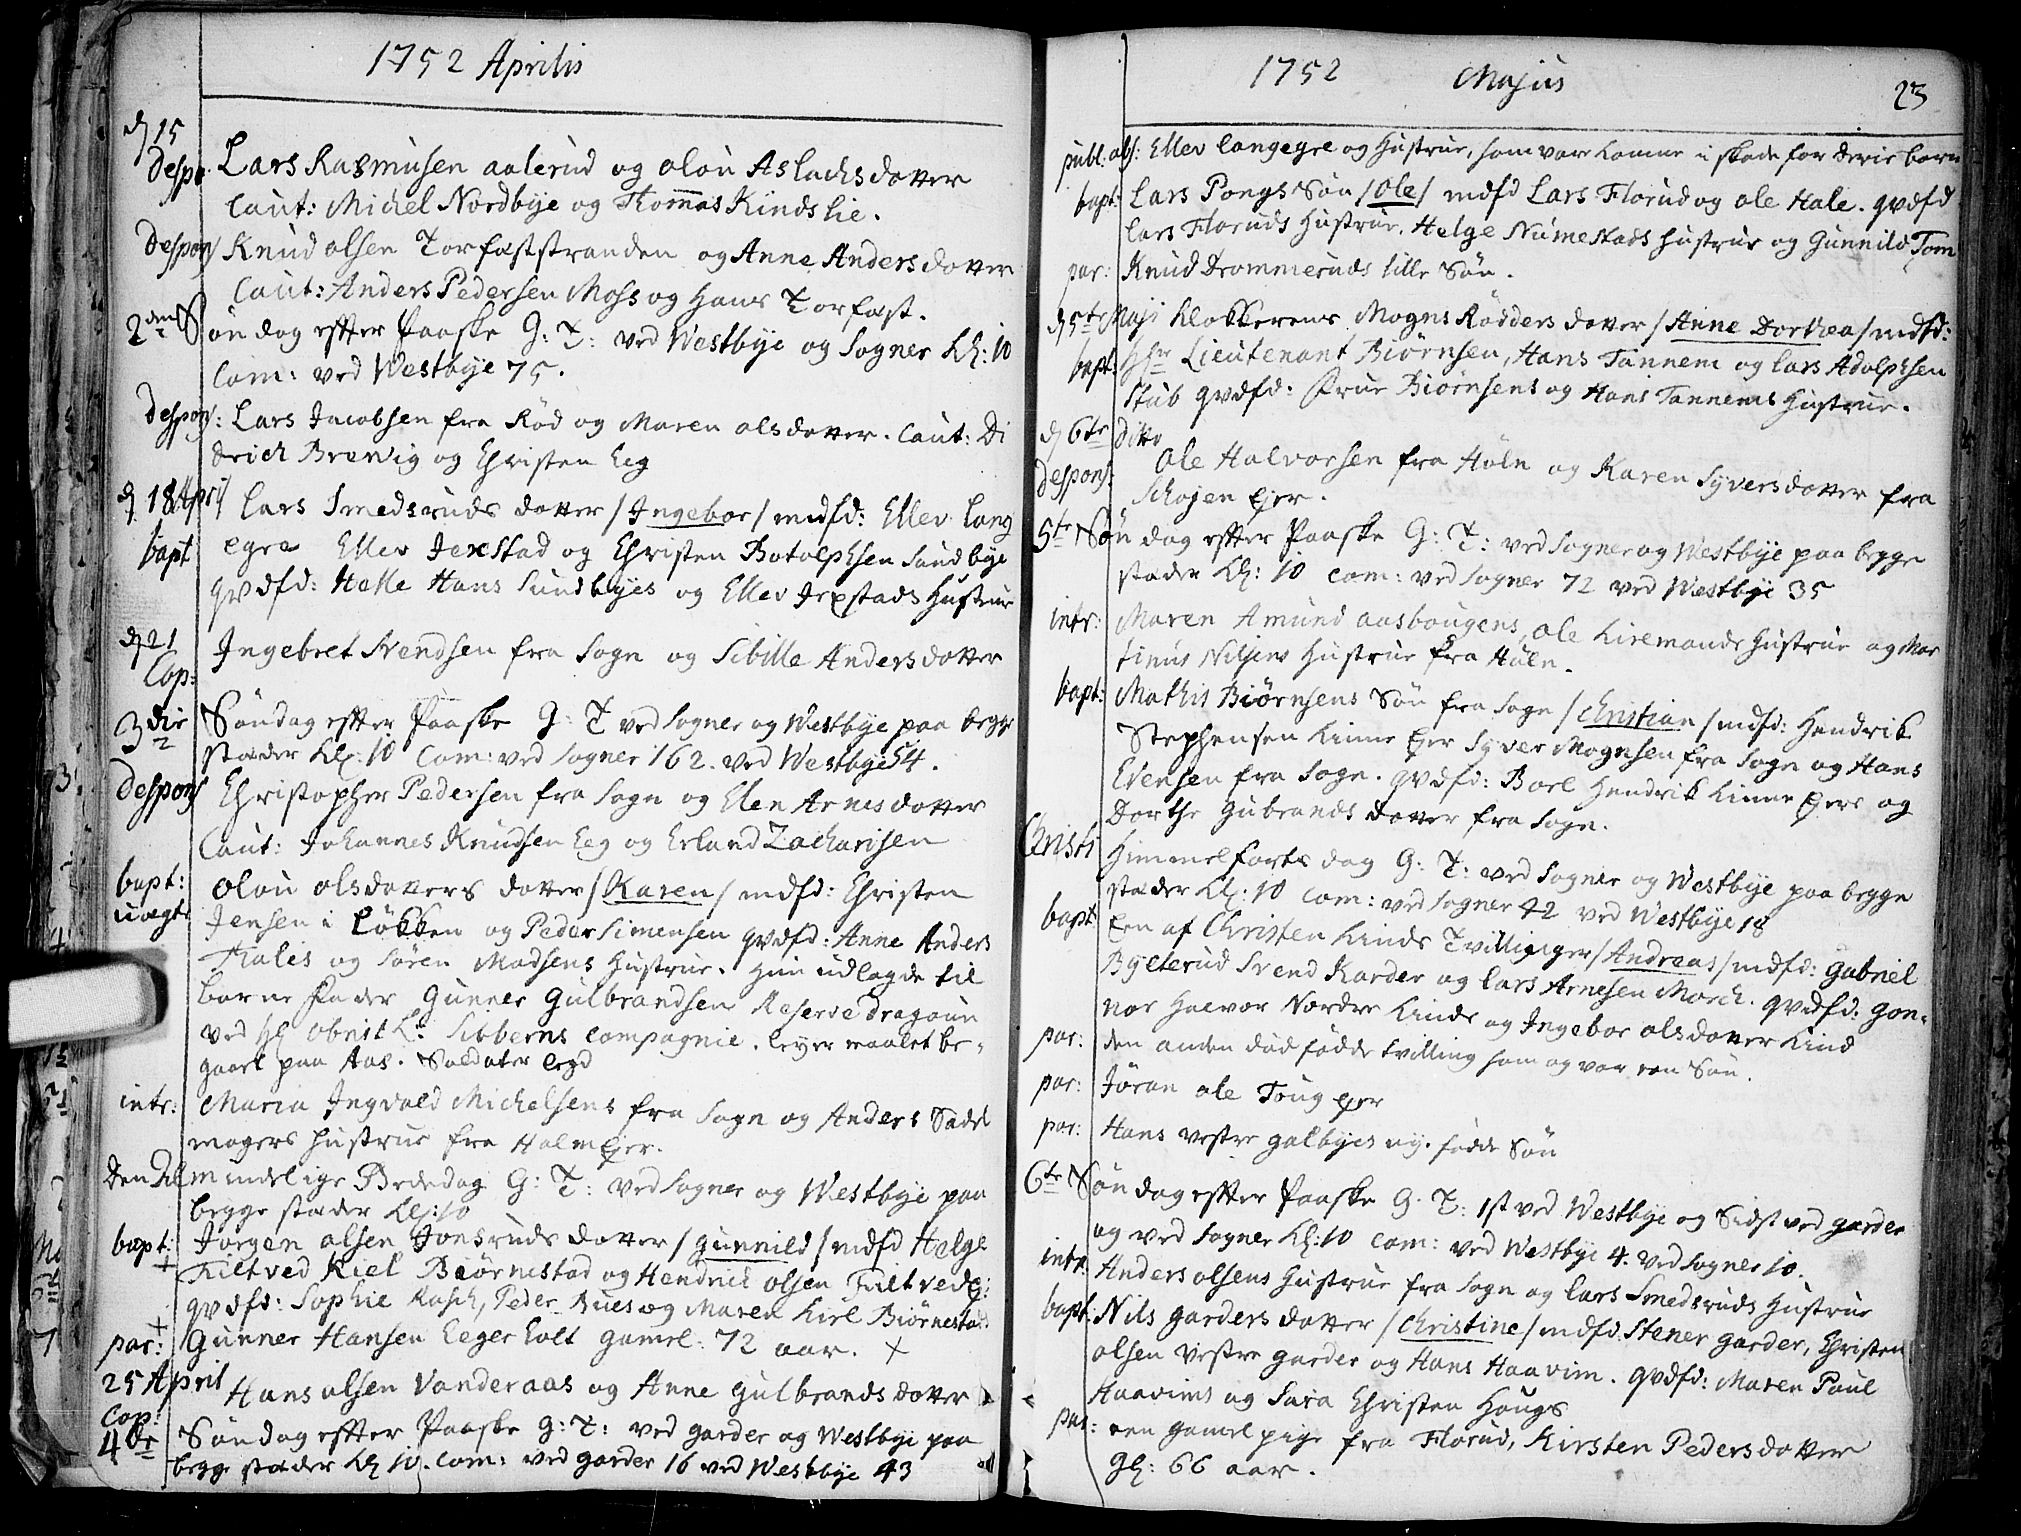 1752 Aprilis
d 15
despo: Lars Rasmusen aalerud og olou Aslachsdotter
Caut: Michel Nordbye og Thommas Kindslie.
Despons Knud olsen Torfaststranden og Anne Andersdotter
Caut: Anders Pedersen Moss og Hans Torfast.
2den Søndag effter Paaske G: T: ved Westbye og Sogner Kl: 10
Com: ved Westbye 75.
Despons: Lars Jacobsen fra Rød og Maren olsdotter. Caut: Di
drich Brewig og Christen Eeg
d 18 April Lars Smedsruds dotter /Ingebor/ mdfd: Ellev Lang
bapt egre Ellev Jexstad og Christen Botolphsen Sundbye
qvdfd: Helle Hans Sundbyes og Ellev Jexstads Hustrue
d 21 Ingebret Svendsen fra Sogn og Sibille Andersdotter
Cop:
3die Søndag effter Paaske G: T ved Sogner og Westbye paa begge
stæder Kl: 10 Com: ved Sogner 162. ved Westbye 54.
Despons Christopher Pedersen fra Sogn og Elen Arnesdotter
Caut: Johannes Knudsen Eeg og Erland Zacharisen
bapt: olou olsdotters dotter /Karen/ mdfd: Christen
uægte Jensen i Løkken og Peder Simensen qvdfd: Anne Anders
Thales og Søren Madsens Hustrue. Hun udlagde til
barne Fader Gunner Gulbrandsen Reserve dragoun
ved Obrist L: Sibberns Compagnie. Leyermaalet be-
gaaet paa Aas. Soldater legd
intr: Maria Ingvald Michelsens fra Sogn og Anders Sadel
magers Hustrue fra Holm Ejer.
Den Almindelige Bededag G: T: ved Sogner og Westbye paa
begge stæder Kl: 10
bapt: Jørgen olsen Jonsruds dotter /gunnild/ mdfd Helge
Filtved Kiel Biørnestad og Hendrick olsen Filtved E:
qvdfd: Sophie Rasch, Peder Bues og Maren Kiel Biørnestads
par: Gunner Hansen Eegerholt gamel: 72 aar. X
25 April Hans olsen Vanderaas og Anne gulbrandsdotter
Cop:
4de Søndag effter Paaske G: T: ved garder og Westbye paa
begge stæder Kl 10. Com: ved garder 16 ved Westbye 43
1752 Majus 23
publ: abs: Ellev Langegre og Hustrue, som vare komne i skade for deris barn
bapt: Lars Pongs Søn /Ole/ mdfd Lars Florud og ole Hale. qvdfd
Lars Floruds Hustrue. Helge Numestads Hustrue og Gunnild Tom
par: Knud Drommeruds lille Søn.
d 5te Maji Klokkerens Mogns Rødders dotter /Anne Dorthea/ mdfd:
bapt: Hr Lieutenant Biørnsen, Hans Tannem og Lars Adolphsen
Stub qvdfd: Frue Biørnsens og Hans Tannems Hustrue.
d 6te ditto
despons: Ole Halvorsen fra Høln og Karen Syversdotter fra
Schojen Ejer.
5te Søndag effter Paaske G: T: ved Sogner og Westbye paa begge
stæder Kl: 10 Com: ved Sogner 72 ved Westbye 35
intr: Maren Amund aasbougens, ole Kiremands Hustrue og Mar
tinus Nilsens Hustrue fra Høln.
bapt: Mathis Biørnsens Søn fra Sogn /Christian/ mdfd: Hendrick
Stephensen Kinne Ejer Syver Mognsen fra Sogn og Hans
Evensen fra Sogn. qvdfd: Boel Hendrick Kinne Ejers og
Dorthe Gubrands dotter fra Sogn.
Christi Himmelfarts dag G: T: ved Sogner og Westbye paa begge
stæder Kl: 10 Com: ved Sogner 42 ved Westbye 18
bapt Een af Christen Kinds Tvillinger /Andreas/ mdfd: Gabriel
Bylterud Svend Karder og Lars Arnesen Morch. qvdfd: Gon-
nor Halvor Nordre Kinds og Ingebor olsdotter Kind
par: den anden dødfødde tvilling som og var een Søn.
par: Jøran ole Toug ejer
par: Hans vestre galbyes ny. fødde Søn
6te Søndag effter Paaske G: T: 1st ved Westbye og Sidst ved garder
og ved Sogner Kl: 10 Com: ved Westbye 4. ved Sogner 10.
intr: Anders olsens Hustrue fra Sogn og Lars Smedsruds Hustrue
bapt: Nils garders dotter /Christine/ mdfd: Stener garder, Christen
olsen vestre garder og Hans Haavim. qvdfd: Maren Poul
Haavims og Sara Christen Hougs
par: een gamel pige fra Florud, Kirsten Pedersdotter
gl: 66 aar.